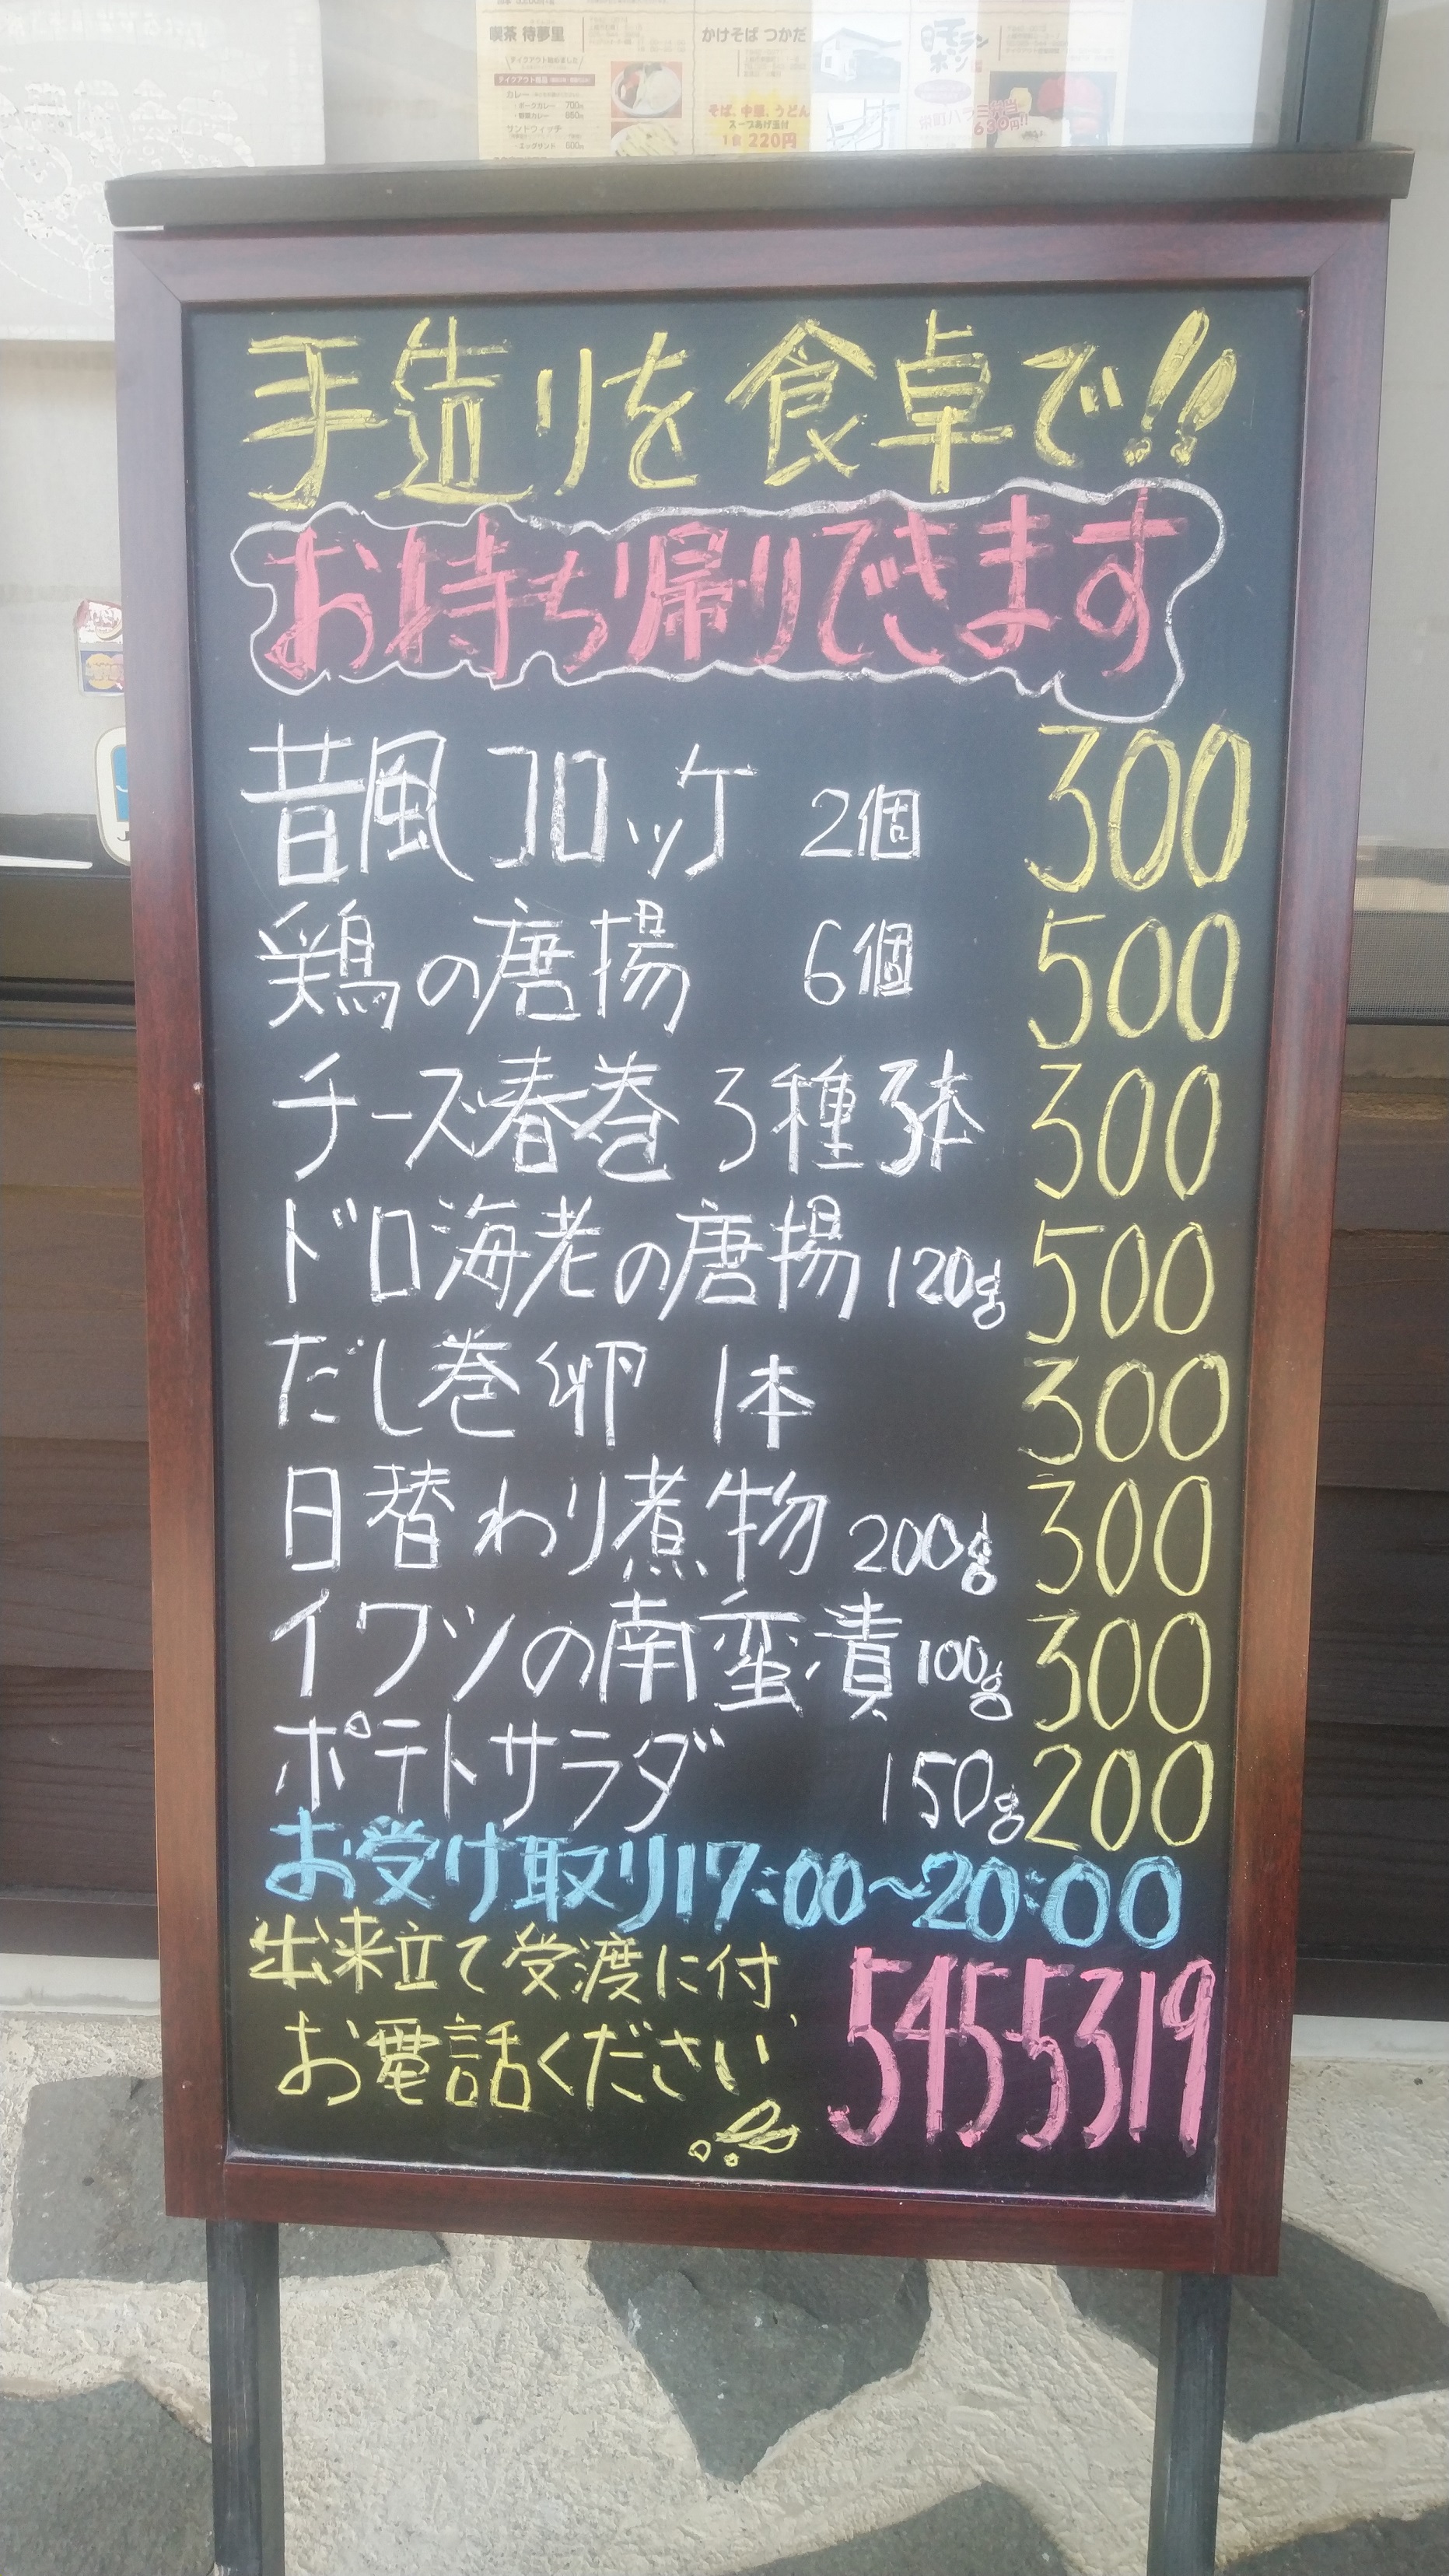 喫茶 待夢里
テイクアウト始めました
カレー
・ポークカレー 700
・野菜カレー 650
サンドウィッチ
・エッグサンド 500
かけそば つかだ
そば、中華、うどん
スープあげ玉付
1食 220円
630円!!
手造りを食卓で!!
お持ち帰りできます
昔風コロッケ 2個 300
鶏の唐揚 6個 500
チーズ春巻 3種3本 300
ドロ海老の唐揚 120g 500
だし巻卵 1本 300
日替わり煮物 200g 300
イワシの南蛮漬 100g 300
ポテトサラダ 150g 200
お受け取り17:00~20:00
出来立て受渡に付、
お電話ください!!
5455319